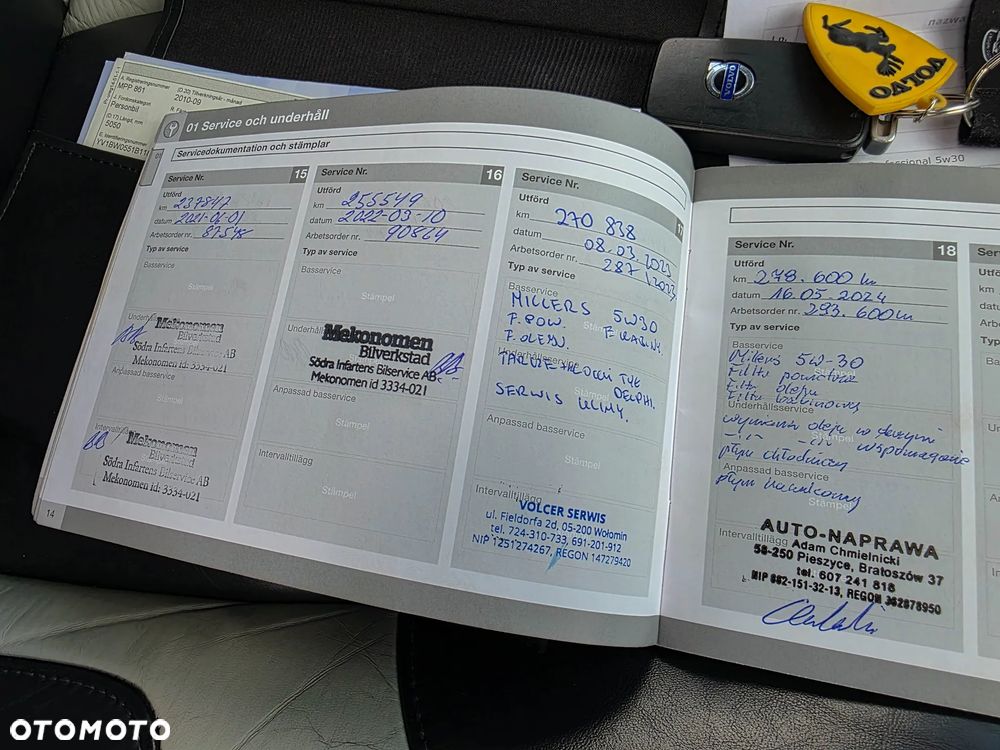 A. Registreringsnummer
MPP 861
J. Fordonskategori
Personbil
(D.17) Längd, mm
5050
E. Identifieringsnummer
YV1BW0551B11
(D.30) Tillverkningsår - månad
2010-09
01 Service och underhåll
Servicedokumentation och stämplar
Service Nr. 15
Utförd
km 237847
datum 2021-06-01
Arbetsorder nr. 87548
Typ av service
Basservice
Stämpel
Mekonomen
Bilverkstad
Södra Infartens Bilservice AB
Mekonomen id: 3334-021
Anpassad basservice
Stämpel
Mekonomen
Bilverkstad
Södra Infartens Bilservice AB
Mekonomen id: 3334-021
14
Service Nr. 16
Utförd
km 255549
datum 2022-03-10
Arbetsorder nr. 90864
Typ av service
Basservice
Stämpel
Mekonomen
Bilverkstad
Södra Infartens Bilservice AB
Mekonomen id 3334-021
Anpassad basservice
Stämpel
Intervalltillägg
Stämpel
Service Nr. 17
Utförd
km 270 838
datum 08.03.2023
Arbetsorder nr. 287/2023
Typ av service
Basservice
MILLERS 5W30
F. POW. F. KABINY.
F. OLEJU.
Underhållsservice
TARCZE + KLOCKI TYŁ
DELPHI.
SERWIS KLIMY.
Anpassad basservice
Stämpel
Intervalltillägg
VOLCER SERWIS
ul. Fieldorfa 2d, 05-200 Wołomin
tel. 724-310-733, 691-201-912
NIP 1251274267, REGON 147279420
Service Nr. 18
Utförd
km 278.600 km
datum 16.05.2024
Arbetsorder nr. 293.600 km
Typ av service
Basservice
Millers 5W-30
Filtr powietrza
Filtr oleju
Filtr kabinowy
Underhållsservice
wymiana oleju w skrzyni
wspomaganie
płyn chłodniczy
Anpassad basservice
płyn hamulcowy
Stämpel
Intervalltillägg
AUTO-NAPRAWA
Adam Chmielnicki
58-250 Pieszyce, Bratoszów 37
tel. 607 241 816
NIP 882-151-32-13, REGON 362878950
VOLVO
VOLVO
nazwa
5w30
OTOMOTO